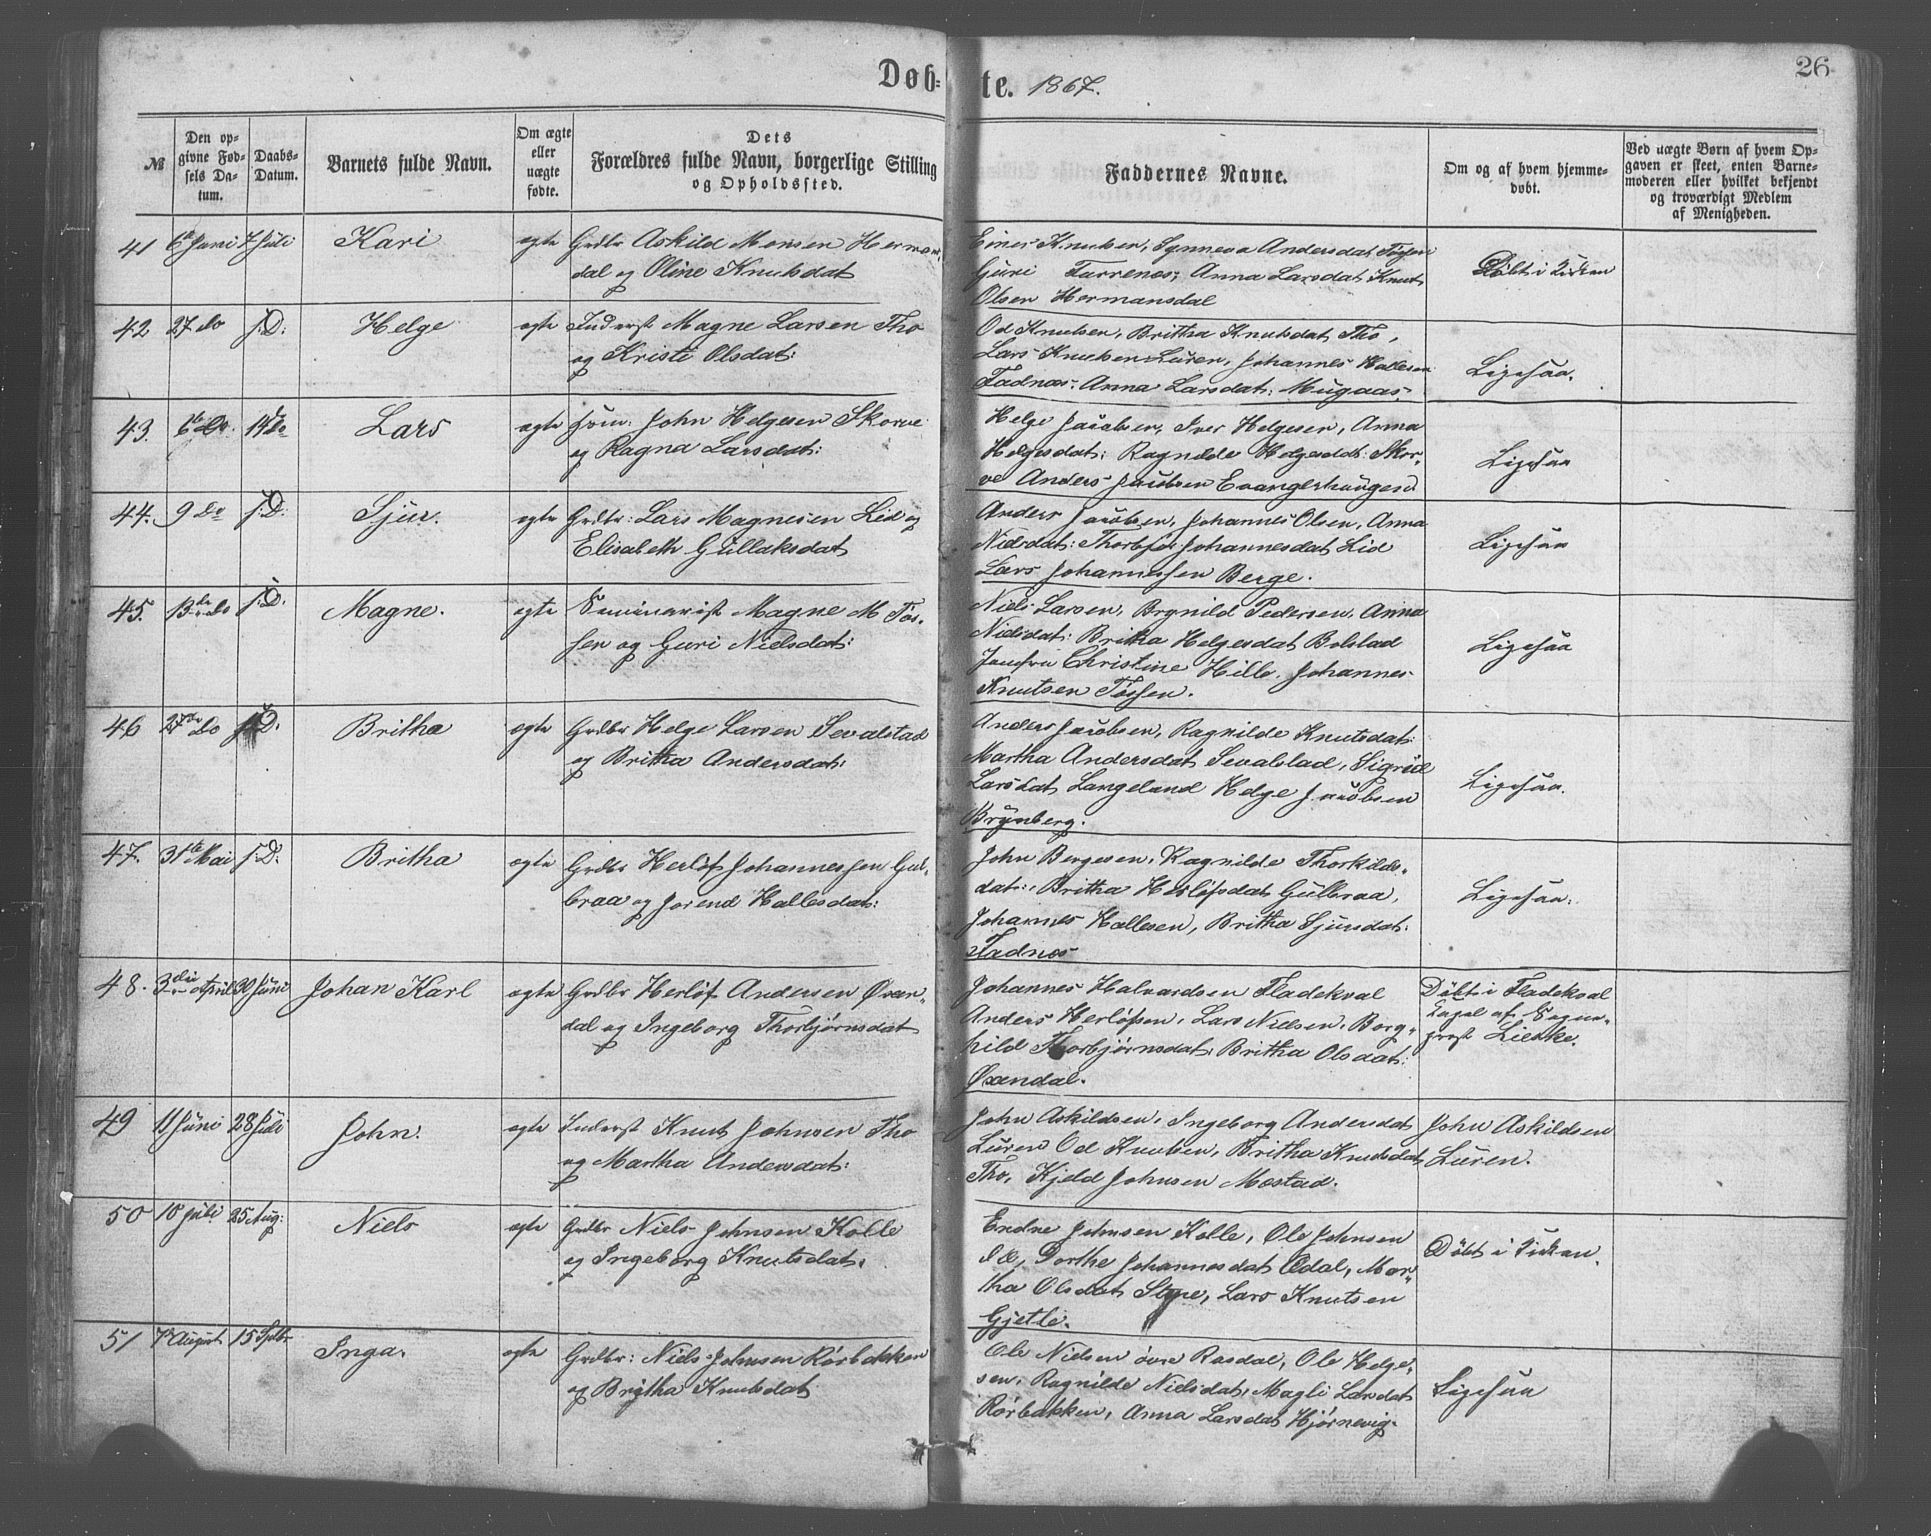 Døb=
te. 1867.
26
№
Den op=
givne Fød=
sels Da=
tum.
Daabs=
Datum.
Barnets fulde Navn.
Om ægte
eller
uægte
fødte.
Dets
Forældres fulde Navn, borgerlige Stilling
og Opholdssted.
Faddernes Navne.
Om og af hvem hjemme=
døbt.
Ved uægte Børn af hvem Op=
gaven er skeet, enten Barne=
moderen eller hvilket bekjendt
og troværdigt Medlem
af Menigheden.
41 6te Juni 7 Juli Kari ægte Grdbr Askild Monsen Herman,
dal og Oline Knutsdat
Einer Knutsen, Synneva Andersdat
Guri Furrenes, Anna Larsdat, Knut
Olsen Hermansdal
Döbt i Kirken
42 27 do s.D. Helge ægte Inderst Magne Larsen Tho
og Kristi Olsdat:
Od Knutsen, Britha Knutsdat, Tho,
Lars Knutsen Luren, Johannes Hallesen
Fadnæs, Anna Larsdat: Mugaas
Ligesaa.
43. 6te do. 14 do Lars ægte Huusm. John Helgesen Skorve
og Ragna Larsdat:
Helge Jacobsen, Iver Helgesen, Anna
Helgesdat: Ragnilde Helgesdat: Skor,
ve Anders Jacobsen Evangerhaugen
Ligesaa
44. 9 do s.D. Sjur. ægte Grdbr: Lars Magnesen Lid og
Elisabeth Gullaksdat
Anders Jacobsen, Johannes Olsen, Anna
Nielsdat: Thorbjør Johannesdat Lid
Lars Johannessen Berge.
Ligesaa
45. 13de do s.D. Magne. ægte Seminarist Magne M Tøs,
sen og Guri Nielsdat:
Niels Larsen, Brynild Pedersen, Anna
Nielsdat: Britha Helgesdat Bolstad
Jomfru Christine Hille, Johannes
Knutsen Tøssen.
Ligesaa
46 27de do s.D. Britha ægte Grdbr Helge Larsen Sevalstad
og Britha Andersdat:
Anders Jacobsen, Ragnilde Knutsdat:
Martha Andersdat Sevalstad, Sigrid
Larsdat Langeland Helge Jacobsen
Brynberg.
Ligesaa.
47. 31te Mai s.D. Britha ægte Grdbr Herlöf Johannessen Gul,
braa og Jorend Hallesdat:
John Bergesen, Ragnilde Thorkilds,
dat:, Britha Herlöfsdat Gulbraa,
Johannes Hallesen, Britha Sjursdat:
Fadnes
Ligesaa.
48. 3die April 30 Juni Johan Karl ægte Grdbr Herlöf Andersen Øxen,
dal og Ingeborg Thorbjørnsdat
Johannes Halvardsen Fladekval
Anders Herlöfsen, Lars Nielsen, Borg,
hild Thorbjørnsdat, Britha Olsdat:
Øxendal.
Döbt i Fladekval
Capel af Sogne,
prest Lietke.
49 11 Juni 28 Juli John. ægte Inderst Knut Johnsen Tho
og Martha Andersdat:
John Askildsen, Ingeborg Andersdat
Luren Od Knutsen, Britha Knutsdat,
Tho, Kjeld Johnsen Mostad.
John Askildsen
Luren.
50 10 Juli 25 Aug: Niels ægte Grdbr Niels Johnsen Kolle
og Ingeborg Knutsdat.
Endre Johnsen Kolle, Ole Johnsen
Dorthe Johannesdat Ædal, Mar,
tha Olsdat Styve, Lars Knutsen
Gjetle.
Döbt i Kirken.
51 7de August 15 Septbr Inga. ægte Grdbr: Niels Johnsen Rörbakken
og Britha Knutsdat
Ole Nielsen övre Rasdal, Ole Helge,
sen, Ragnilde Nielsdat, Magli Larsdat
Rörbakken, Anna Larsdat Hjørnevig.
Ligesaa